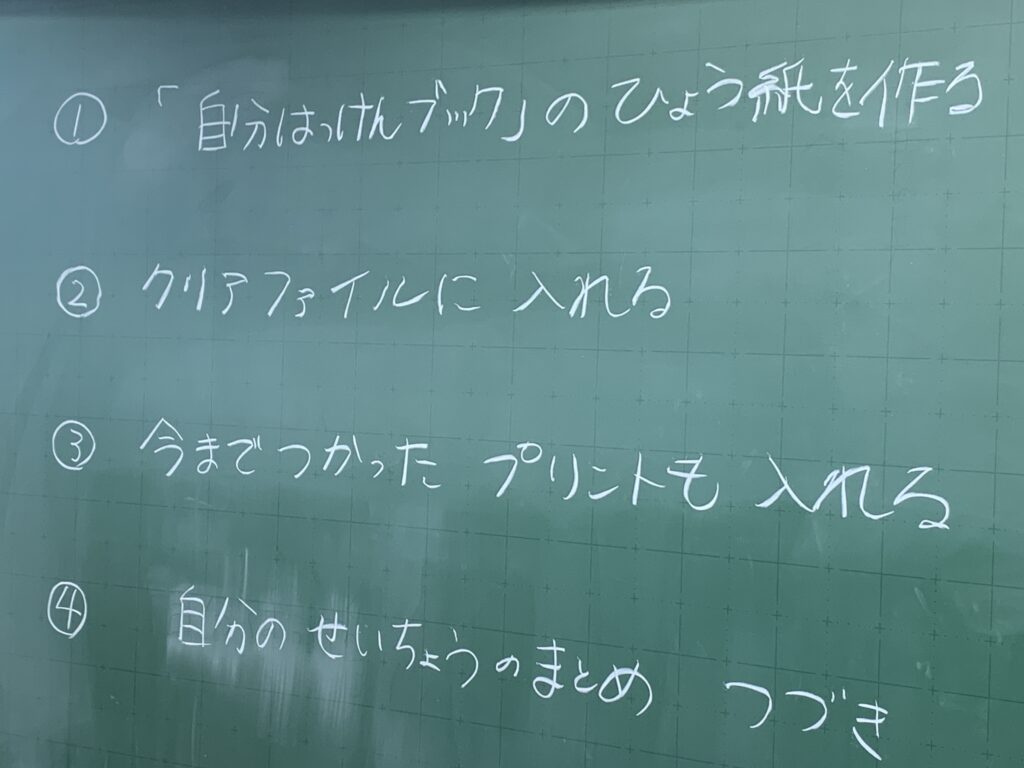 ①「自分はっけんブック」のひょう紙を作る
②クリアファイルに入れる
③今までつかったプリントも入れる
④自分のせいちょうのまとめ つづき